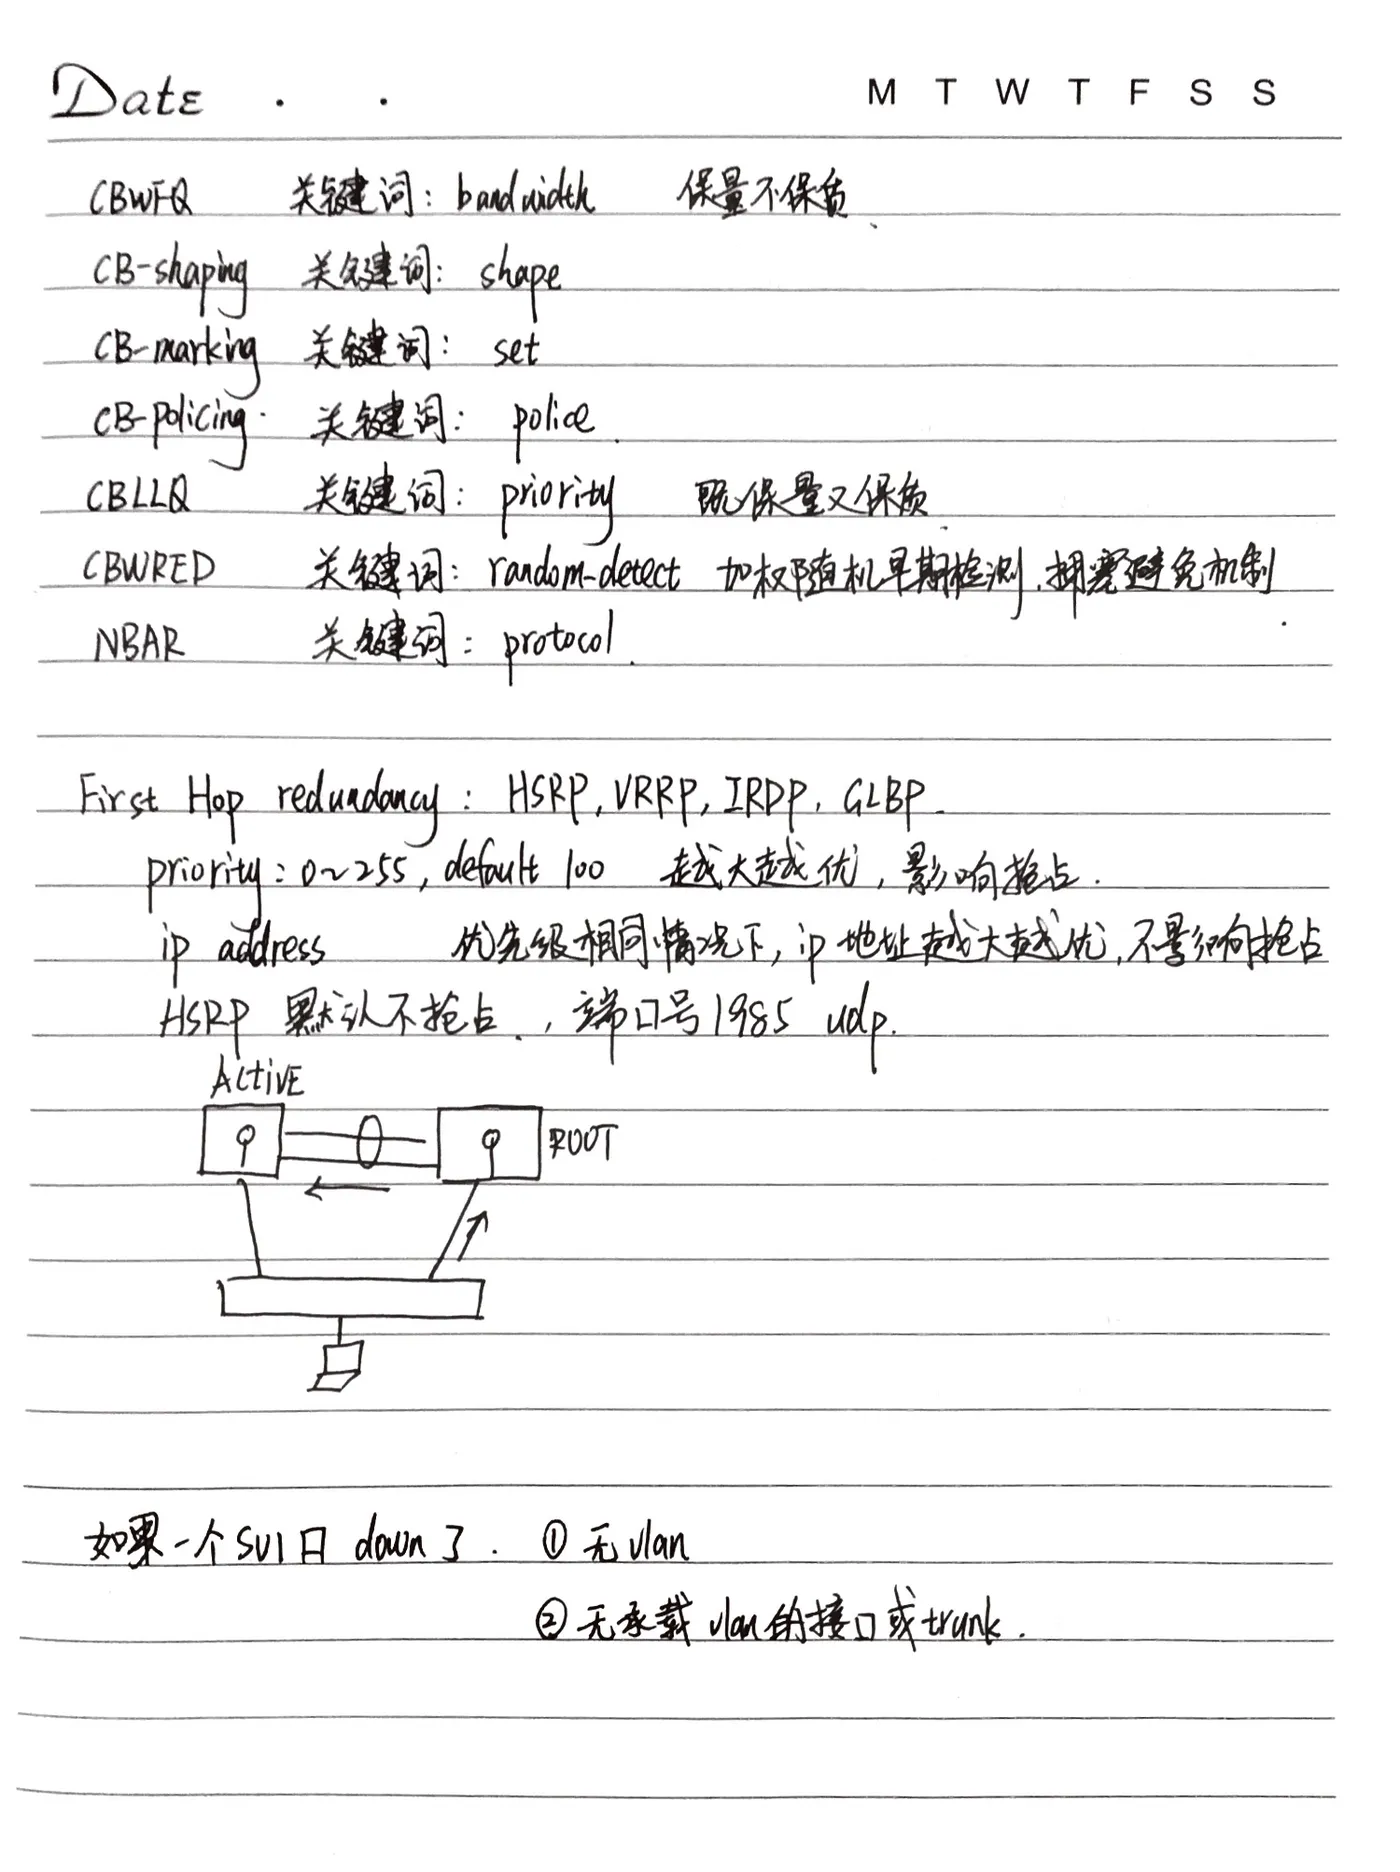 Date . . M T W T F S S
CBWFQ 关键词: bandwidth 保量不保质.
CB-shaping 关键词: shape
CB-marking 关键词: set
CB-policing. 关键词: police.
CBLLQ 关键词: priority 既保量又保质.
CBWRED 关键词: random-detect 加权随机早期检测,拥塞避免机制.
NBAR 关键词: protocol.
First Hop redundancy: HSRP, VRRP, IRDP, GLBP.
priority: 0~255, default 100 越大越优, 影响抢占.
ip address 优先级相同情况下, ip地址越大越优, 不影响抢占
HSRP 默认不抢占., 端口号1985 udp.
ACtiVE
ROOT
如果一个SVI口 down了. ① 无vlan
② 无承载vlan的接口或trunk.